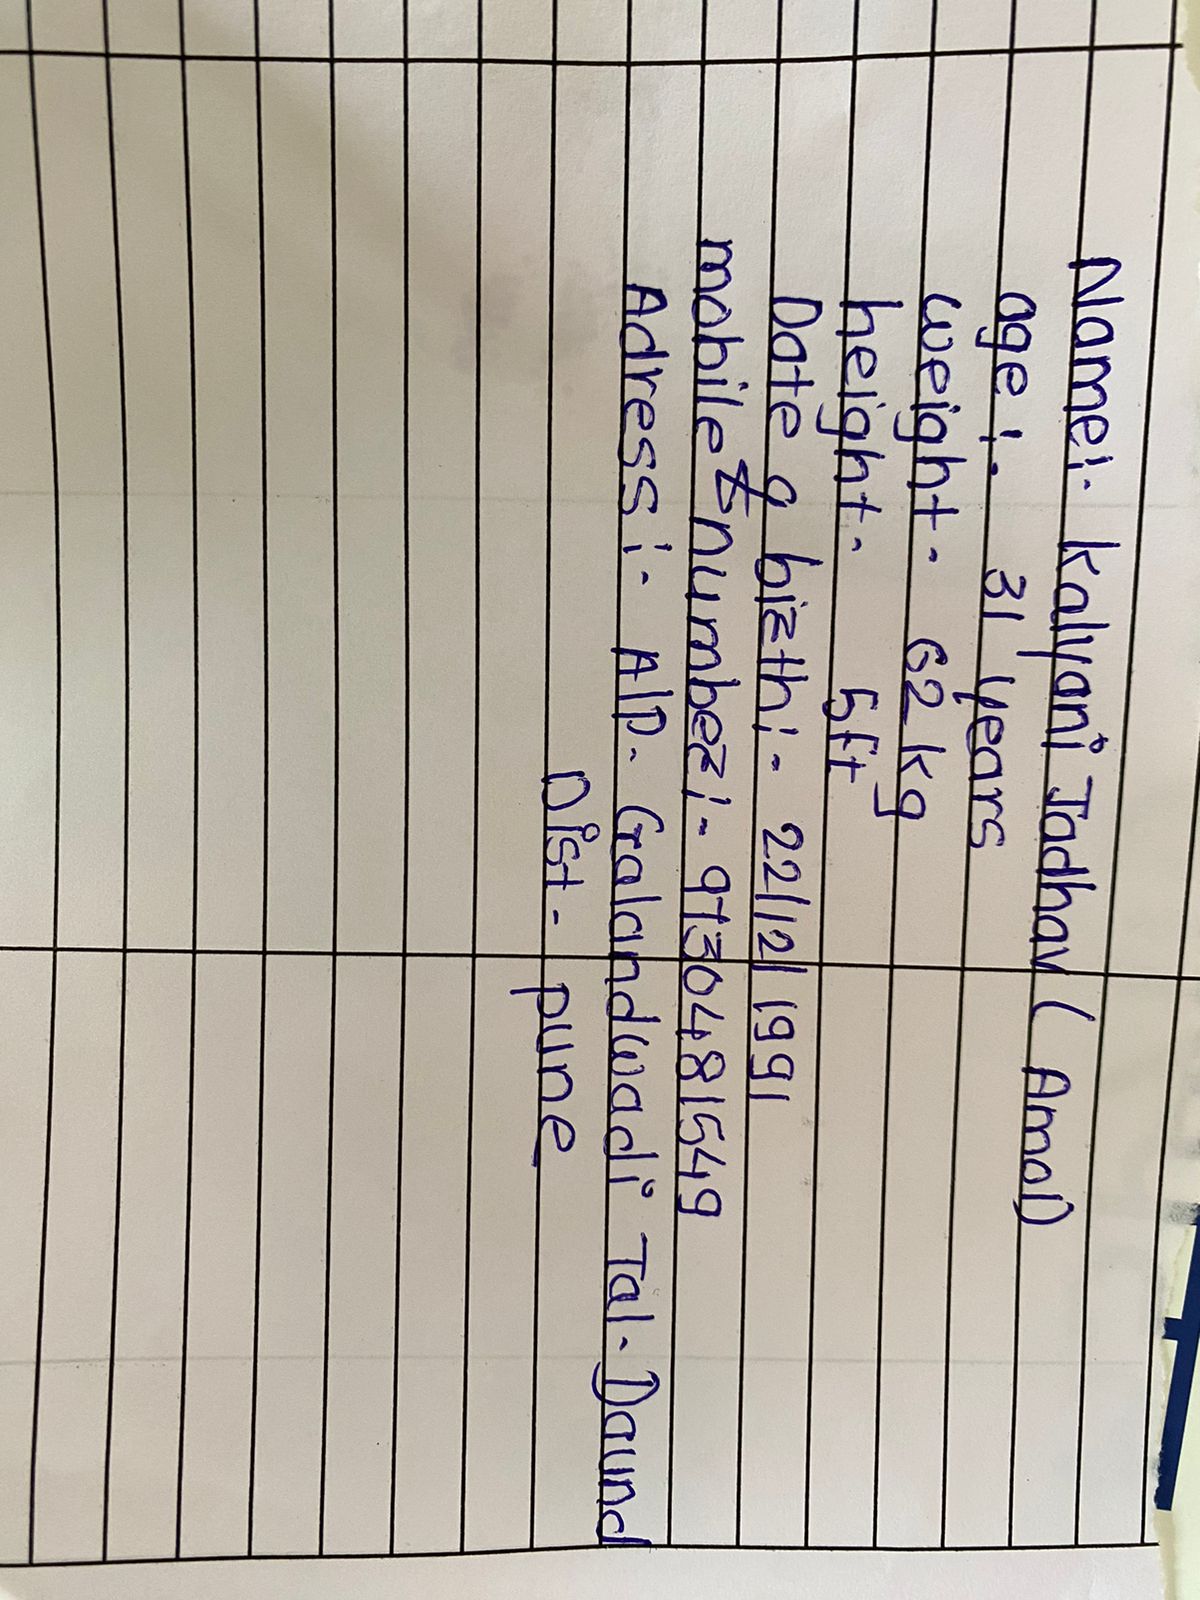 Name:- Kalyani Jadhav ( Amol)
age :- 31 years
weight - 62 kg
height - 5ft
Date o birth:- 22/12/1991
mobile number:- 9730481549
Adress :- A/P- Galandwadi Tal- Daund
Dist - pune